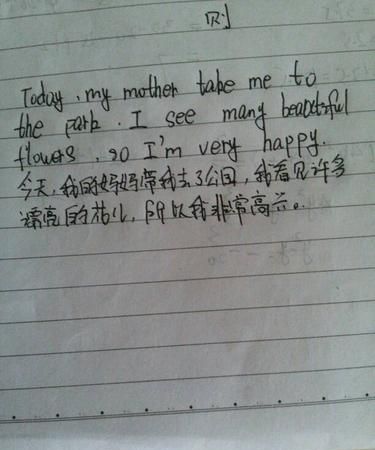 则
Today, my mother take me to
the park. I see many beautiful
flowers, so I'm very happy.
今天,我的妈妈带我去了公园,我看见许多
漂亮的花儿,所以我非常高兴。